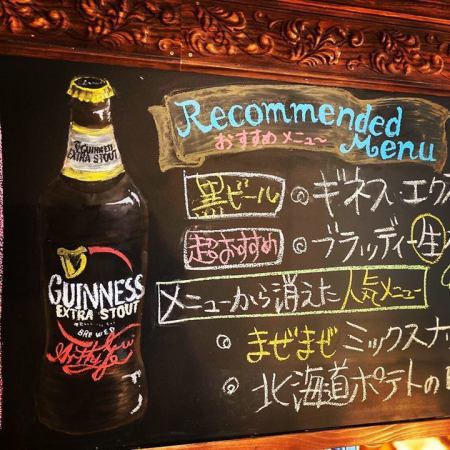 GUINNESS
EXTRA STOUT
GUINNESS
EXTRA STOUT
BREWED
Recommended
Menu
おすすめメニュー
黒ビール ◎ ギネス・エクス
超おすすめ ◎ ブラッディー生
メニューから消えた人気メニュー
◎ まぜまぜ ミックスナッ
◎ 北海道ポテトの